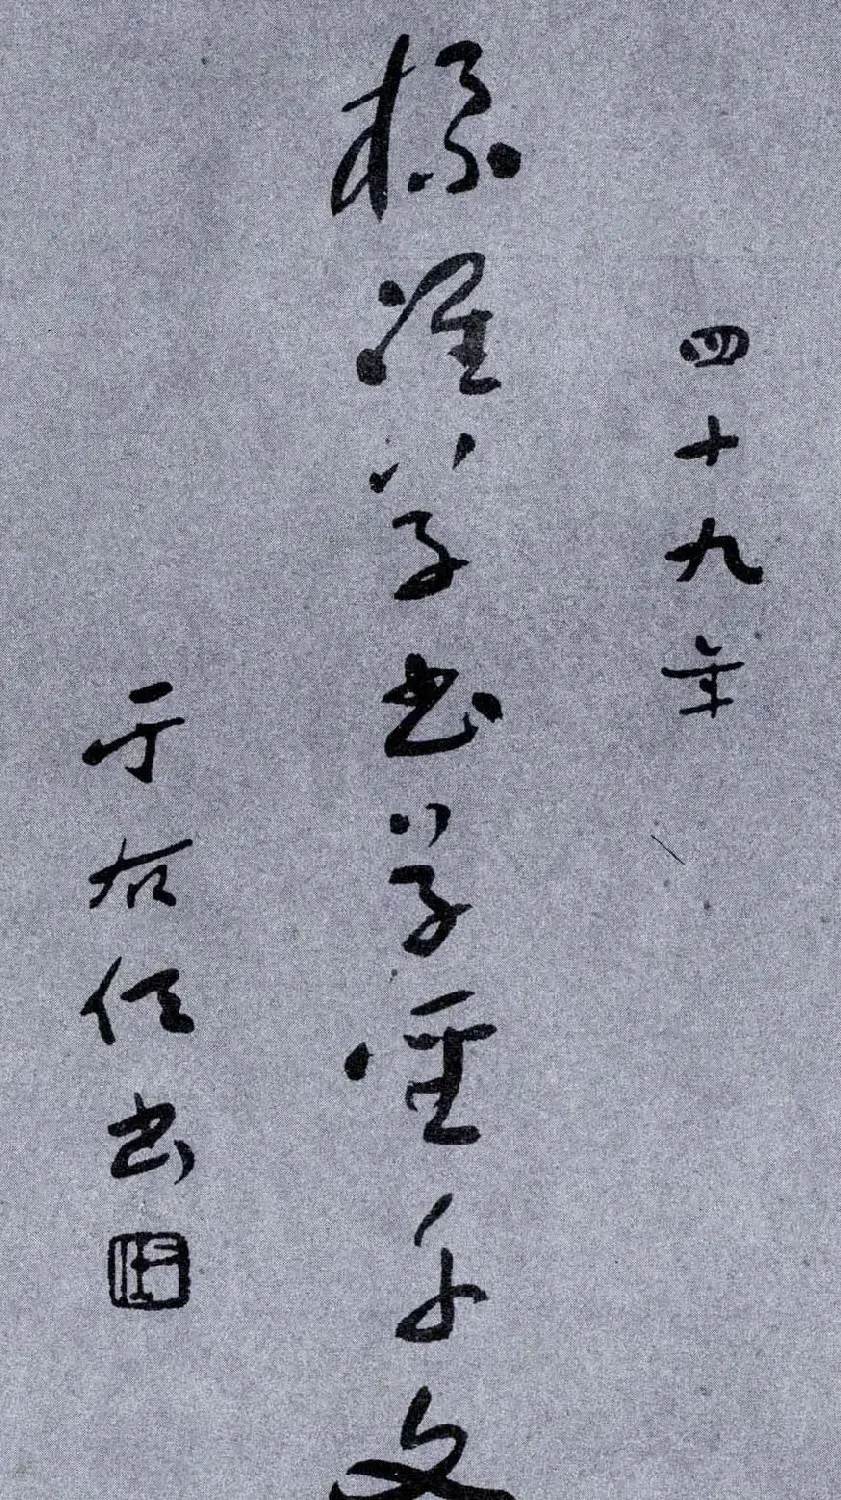 四十九年
標準草書草聖千文
于右任書